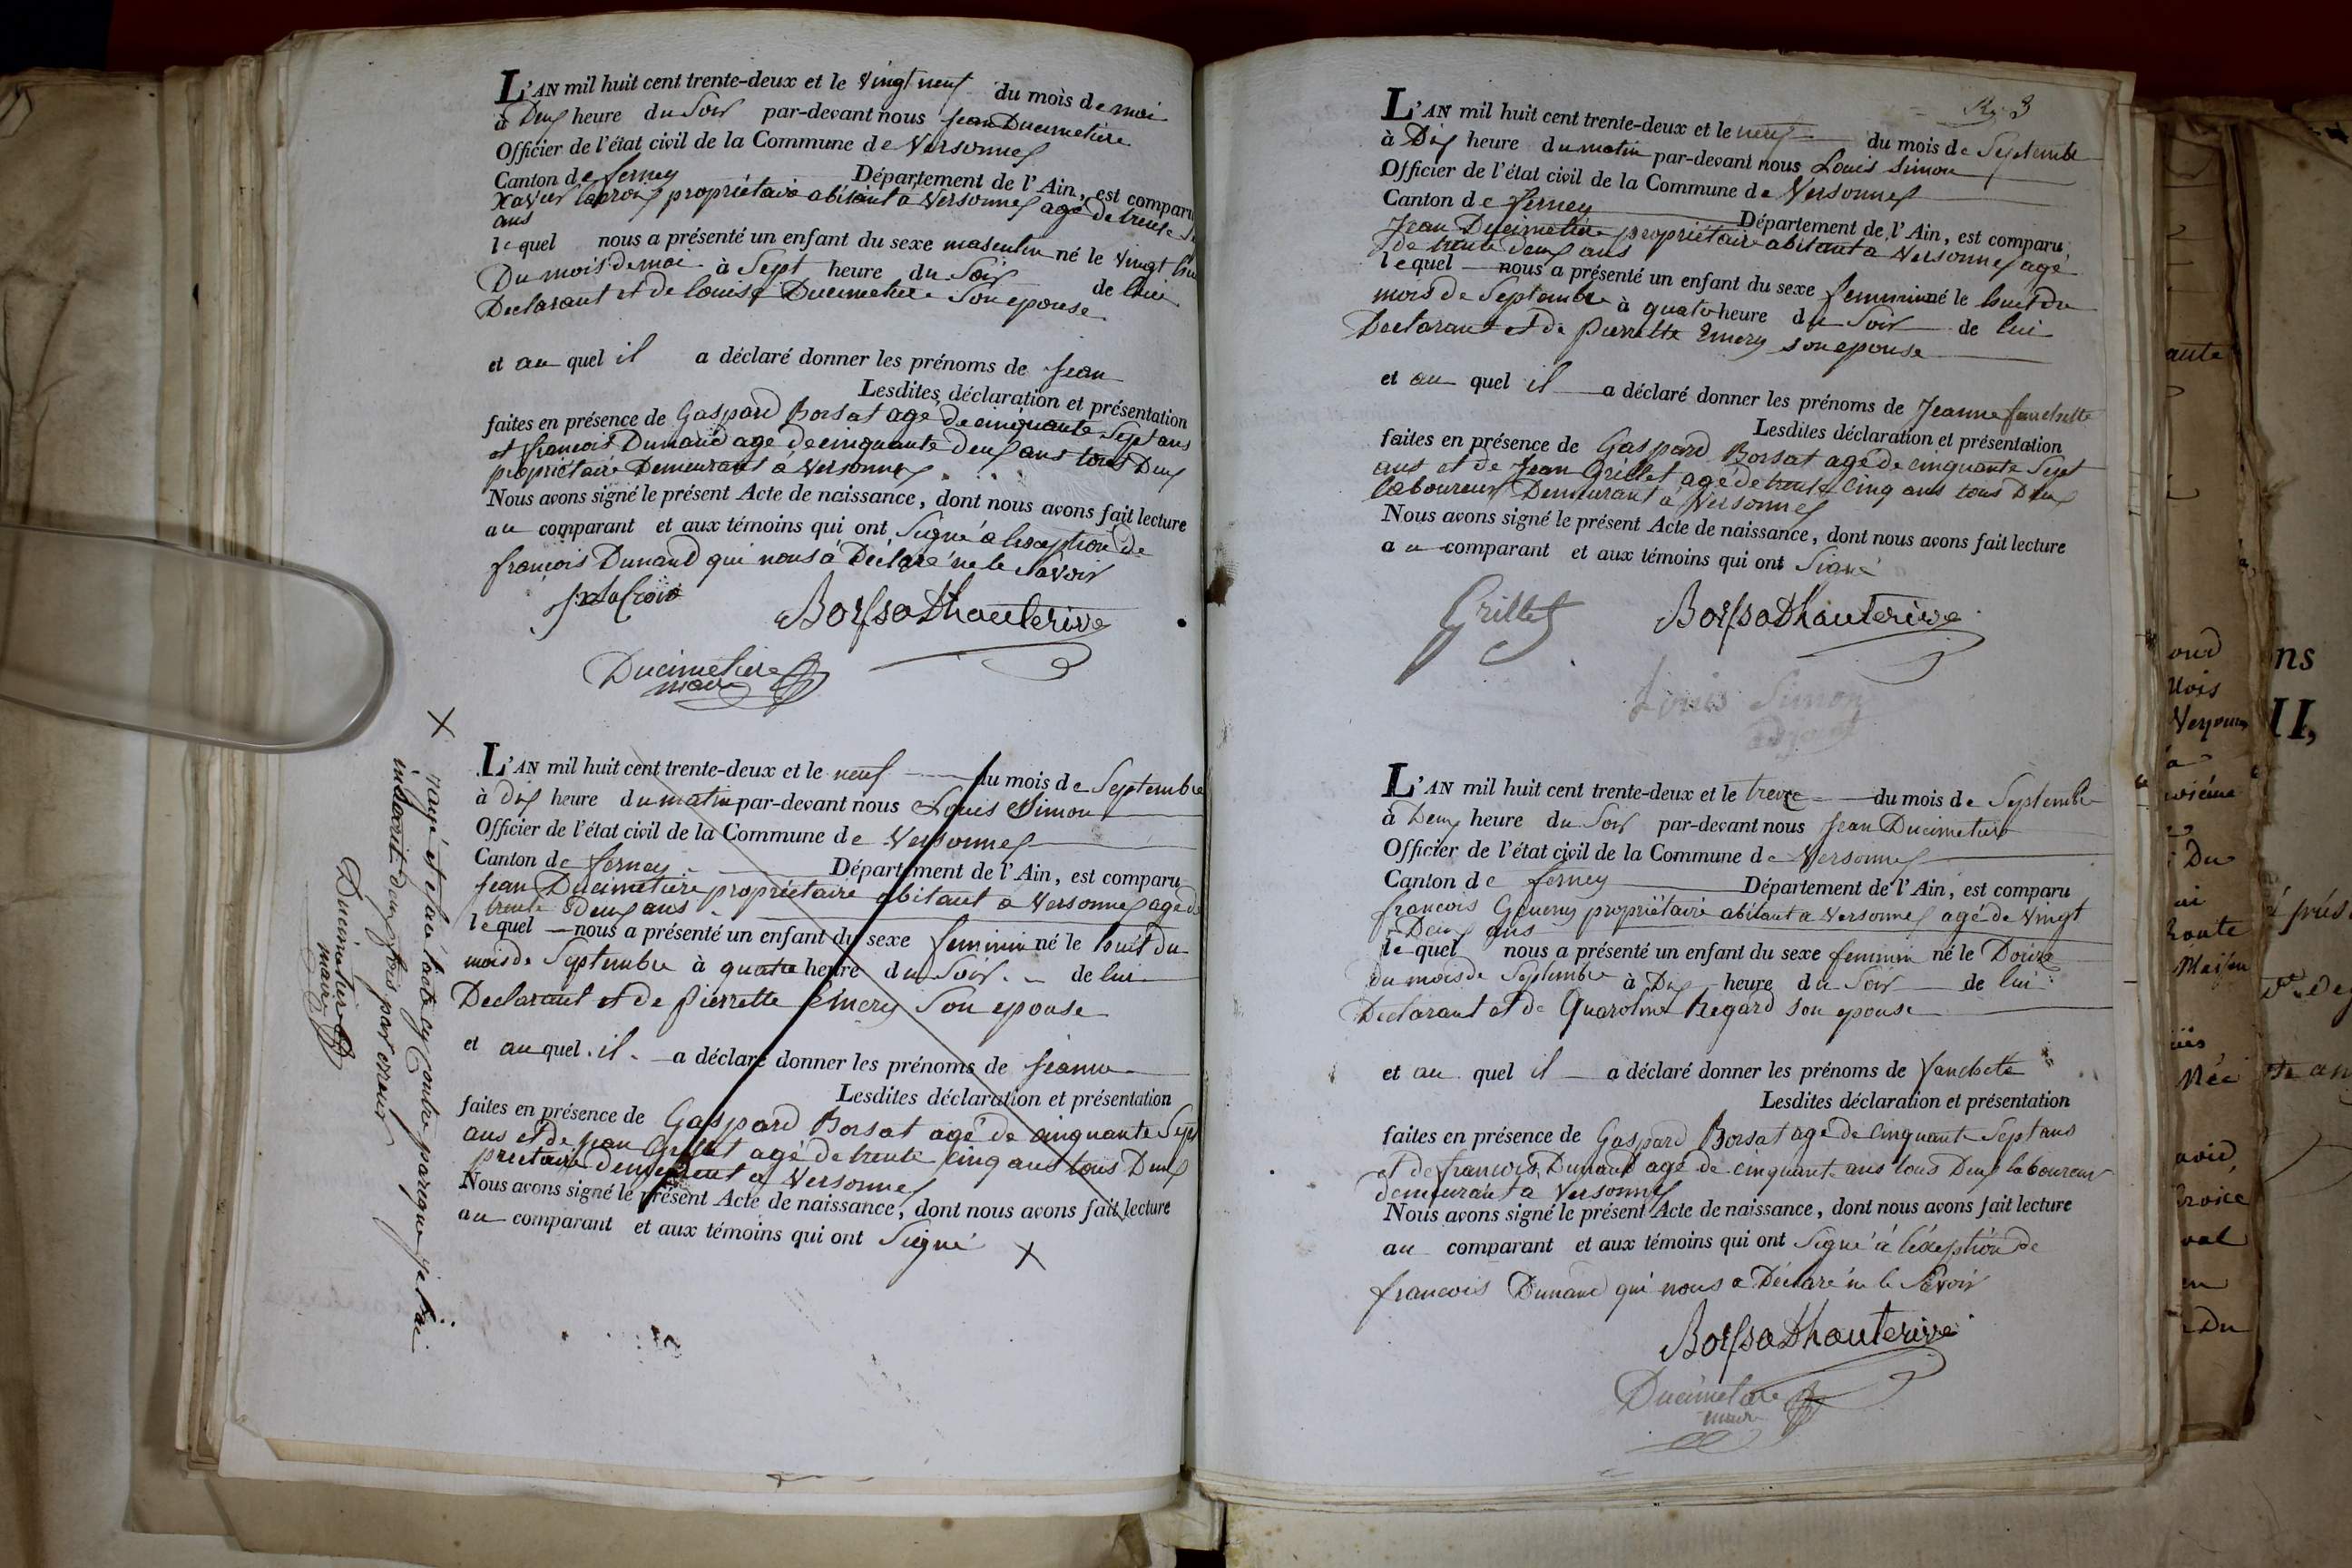 L'AN mil huit cent trente-deux et le vingt neuf du mois de mai
à Deux heure du Soir par-devant nous jean Ducimetiere
Officier de l'état civil de la Commune de Versonnex
Canton de ferney Département de l'Ain, est comparu
Xavier lacroix propriétaire abitant a Versonnex agé de trente
ans
le quel nous a présenté un enfant du sexe masculin né le vingt
Du mois de mai à Sept heure du Soir de lui
Declarant et de louise Ducimetiere Son epouse
et au quel il a déclaré donner les prénoms de jean
Lesdites déclaration et présentation
faites en présence de Gaspard Borsat agé de cinquante Sept ans
et francois Dunand agé de cinquante deux ans tous Deux
propriétaire Demeurant à Versonnex
Nous avons signé le présent Acte de naissance, dont nous avons fait lecture
au comparant et aux témoins qui ont Signé a lexception de
francois Dunand qui nous a Déclaré ne le Savoir
Borssat Dhauterive
Ducimetiere
maire
L'AN mil huit cent trente-deux et le neuf du mois de Septembre
à dix heure du matin par-devant nous Louis Simon
Officier de l'état civil de la Commune de Versonnex
Canton de ferney Département de l'Ain, est comparu
jean Ducimetiere propriétaire abitant a Versonnex agé de
trente deux ans
le quel nous a présenté un enfant du sexe feminin né le huit du
mois de Septembre à quatre heure du Soir de lui
Declarant et de pierrette Emery Son epouse
et au quel il a déclaré donner les prénoms de jeanne
Lesdites déclaration et présentation
faites en présence de Gaspard Borsat agé de cinquante Sept
ans et de jean Grillet agé de trente cinq ans tous Deux
prietaire demeurant a Versonnex
Nous avons signé le présent Acte de naissance, dont nous avons fait lecture
au comparant et aux témoins qui ont Signé X
X rayé et l'acte cy contre parceque je l'ai
inscrit deux fois par erreur
Ducimetiere
maire
3
L'AN mil huit cent trente-deux et le neuf du mois de Septembre
à Dix heure du matin par-devant nous Louis Simon
Officier de l'état civil de la Commune de Versonnex
Canton de ferney Département de l'Ain, est comparu
Jean Ducimetiere propriétaire abitant a Versonnex agé
de trente deux ans
le quel nous a présenté un enfant du sexe feminin né le huit du
mois de Septembre à quatre heure du Soir de lui
Declarant et de pierrette Emery son epouse
et au quel il a déclaré donner les prénoms de Jeanne fanchette
Lesdites déclaration et présentation
faites en présence de Gaspard Borsat agé de cinquante Sept
ans et de Jean Grillet agé de trente cinq ans tous Deux
laboureur Demeurant a Versonnex
Nous avons signé le présent Acte de naissance, dont nous avons fait lecture
au comparant et aux témoins qui ont Signé
Grillet Borssat Dhauterive
Louis Simon
adjoint
L'AN mil huit cent trente-deux et le treize du mois de Septembre
à Deux heure du Soir par-devant nous jean Ducimetiere
Officier de l'état civil de la Commune de Versonnex
Canton de ferney Département de l'Ain, est comparu
francois propriétaire abitant a Versonnex agé de vingt
Deux ans
le quel nous a présenté un enfant du sexe feminin né le Douze
du mois de Septembre à Dix heure du Soir de lui
Declarant et de Quaroline Regard son epouse
et au quel il a déclaré donner les prénoms de fanchete
Lesdites déclaration et présentation
faites en présence de Gaspard Borsat agé de cinquante Sept ans
et de francois Dunand agé de cinquante ans tous Deux laboureur
demeurant a Versonnex
Nous avons signé le présent Acte de naissance, dont nous avons fait lecture
au comparant et aux témoins qui ont Signé a l'exeption de
francois Dunand qui nous a Déclaré ne le Savoir
Borssat Dhauterive
Ducimetiere
maire